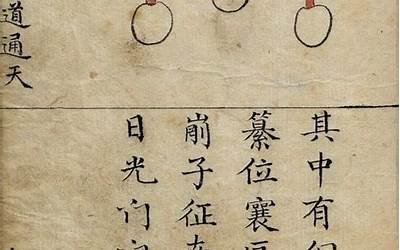 道通天
其中有
纂位襄
崩子征
日光门